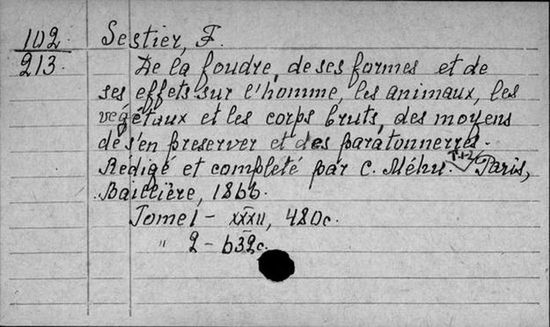 102 Sestier, F.
213. De la foudre, de ses formes et de
ses effets sur l'homme, les animaux, les
végétaux et les corps bruts, des moyens
de s'en preserver et des paratonnerres.
Rédigé et completé par C. Méhu. T.1-2 Paris,
Baillière, 1866
Tome 1 - XXXII, 480c.
" 2 - 632c.